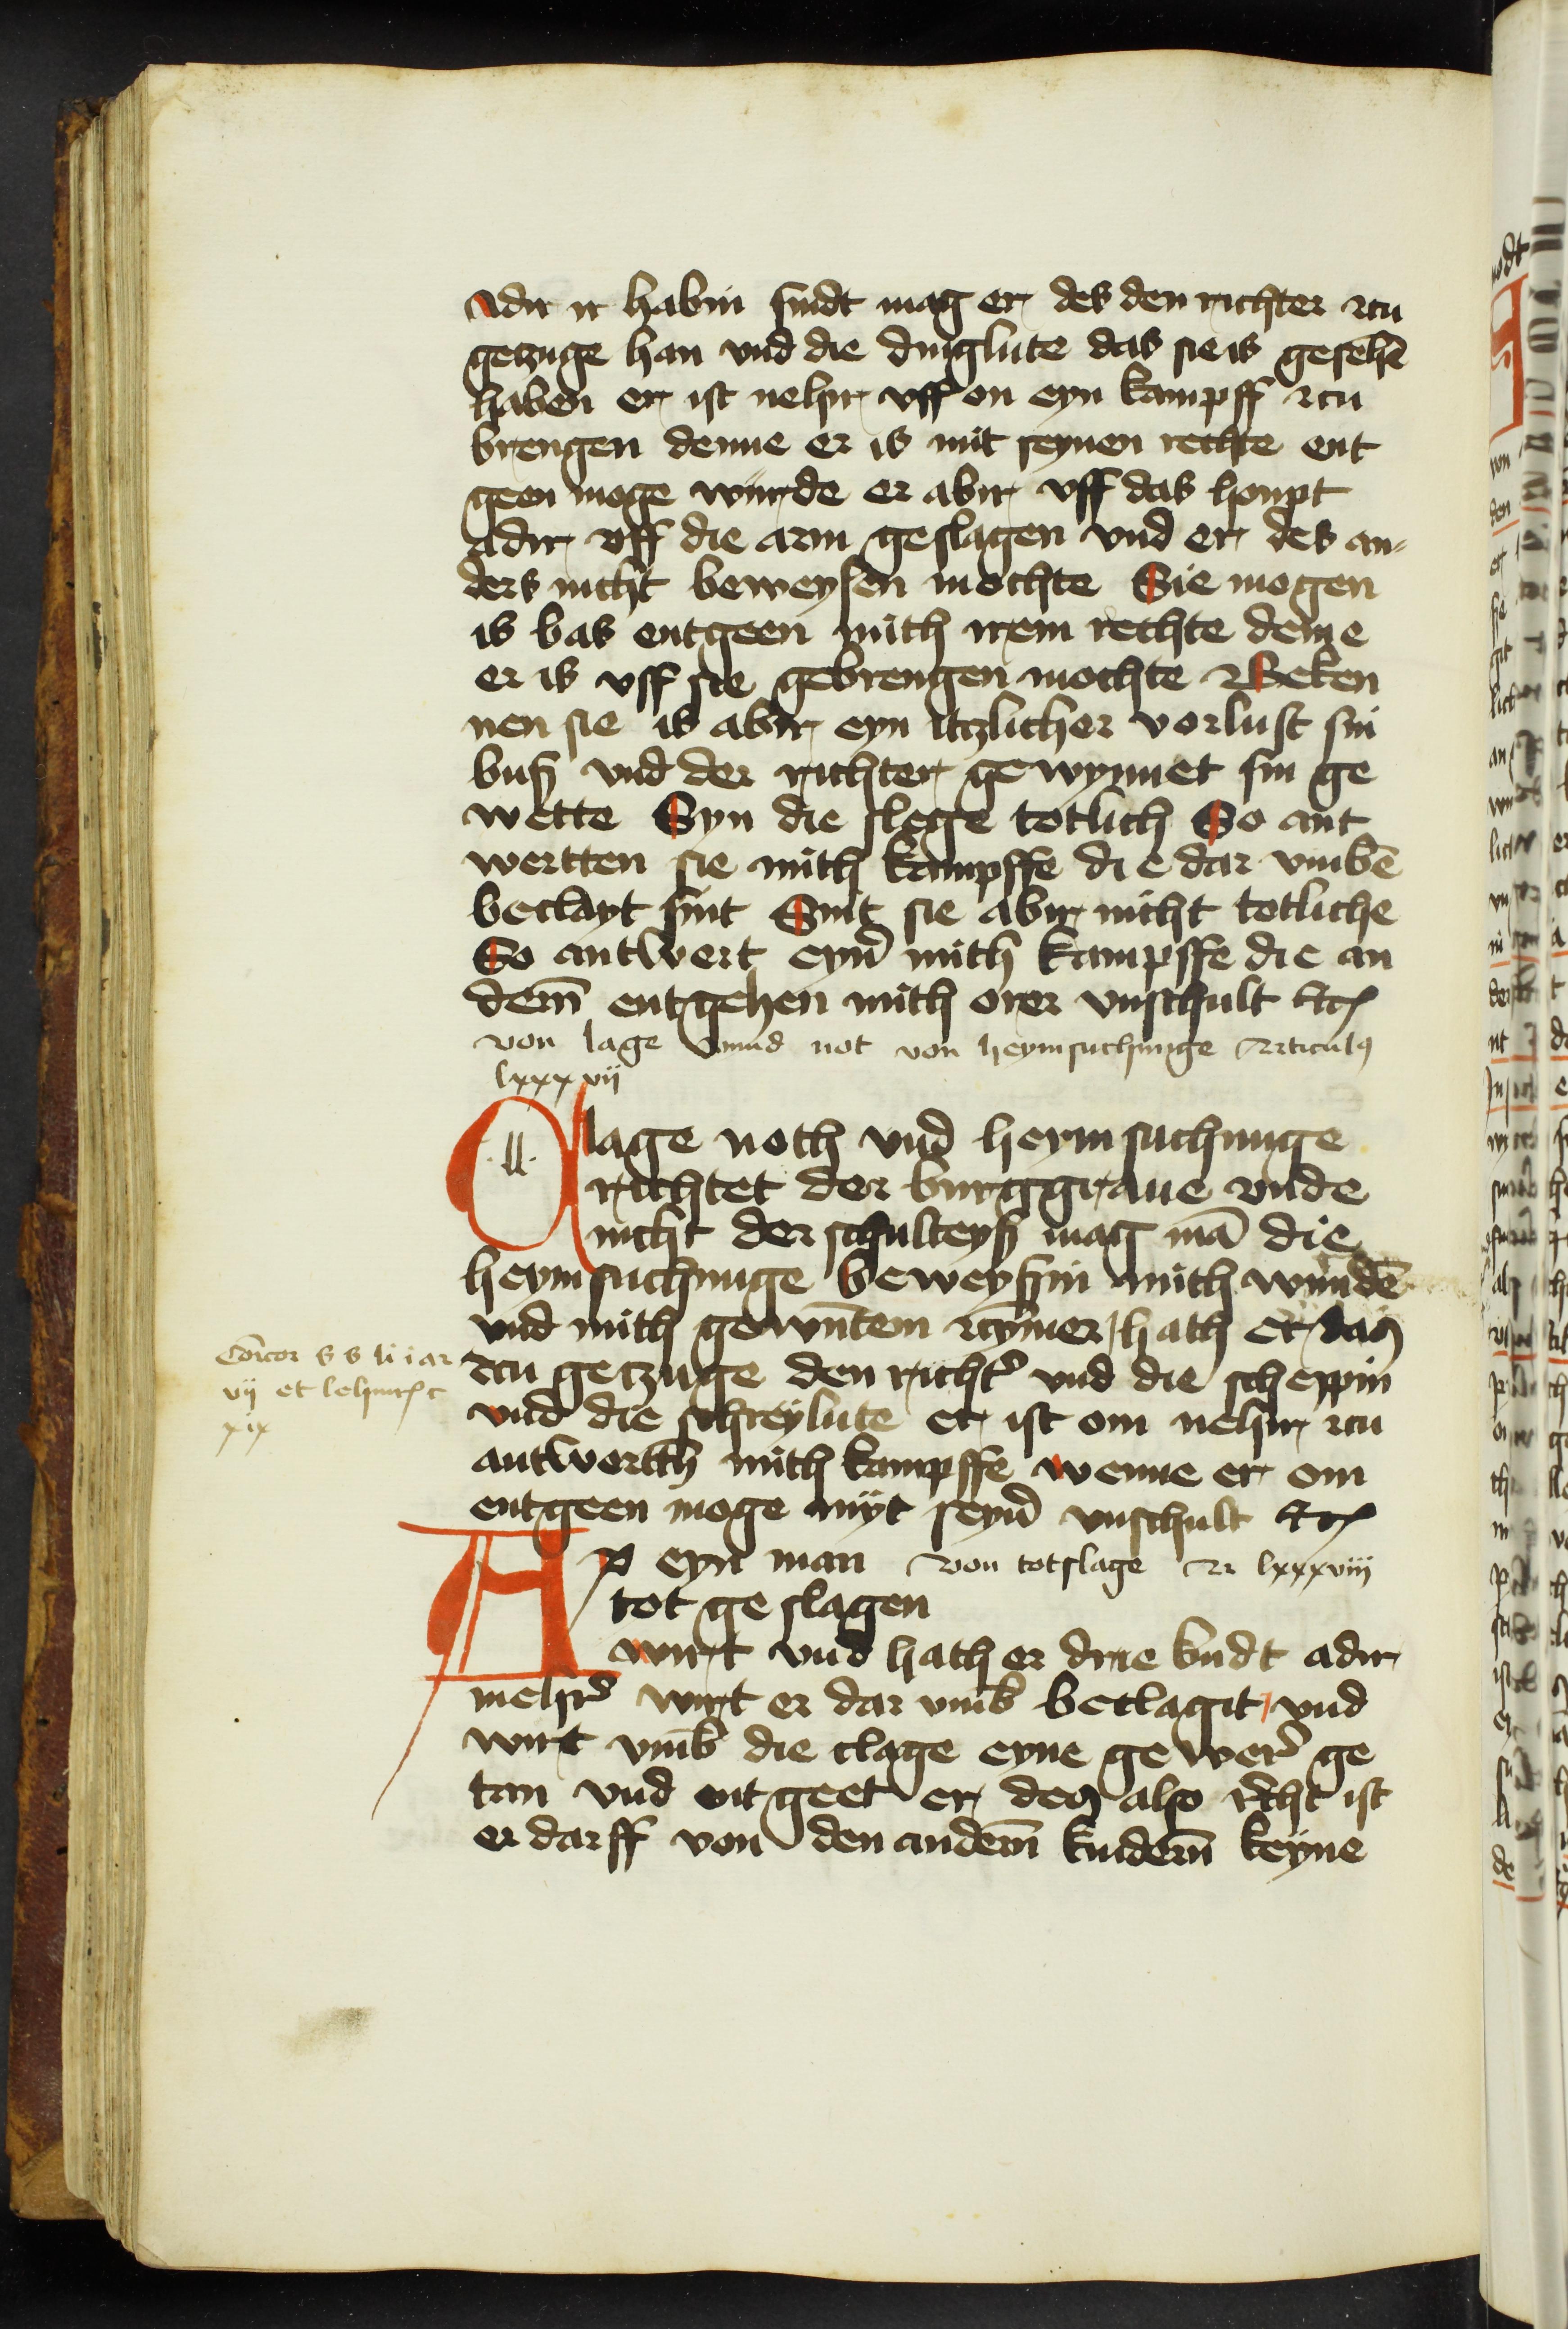 adir ir habin sindt mag er des den richter zcu
getzuge han vnd die dinglute das sie is gesehē
haben er ist nehir vff on eyn kampff zcu
brengen denne er is mit seynen rechte ent
geen moge wurde er abir vff das houpt
adir vff die arm geslagen vnd er des an-
ders nicht beweysen mochte Sie mogen
is bas entgeen mith irem rechte denne
er is vff sie gebrengen mochte Beken
nen sie is abir eyn itzlicher vorlust sin
buß vnd der richter gewynnet sin ge
wette Syn die slege totlich So ant
wertten sie mith kampffe die dar vmbē
beclayt sint Sint sie abir nicht totliche
So antwert eyn̄ mith kampffe die an
dern̄ entgehen mith orer vnschult etc
von lage vnnd not von heymsuchunge Articulꝯ
lxxxvij
lage noth vnd heymsuchunge
richtet der burggraue vnde
nicht der schulteyß mag mā die
heymsuchunge beweyßin mith wundē
vnd mith gewūtem zcymer hath er daß
zcu getzuge den richtˀ vnd die scheppin
vnd die schreylute er ist om nehir zcu
antwertth mith kampffe wenne er om
entgeen moge myt seynˀ vnschult etc
Concor s s li i ar
vij et lehnrec
xix
A p eyn man von totslage Ar lxxxviij
tot geslagen
wirt vnd hath er drie kindt adir
mehirˀ wirt er dar vmb beclagit vnd
wirt vmb die clage eyne gewerˀ ge
tan vnd entgeet er deß also recht ist
er darff von den andern̄ kindern̄ keyne